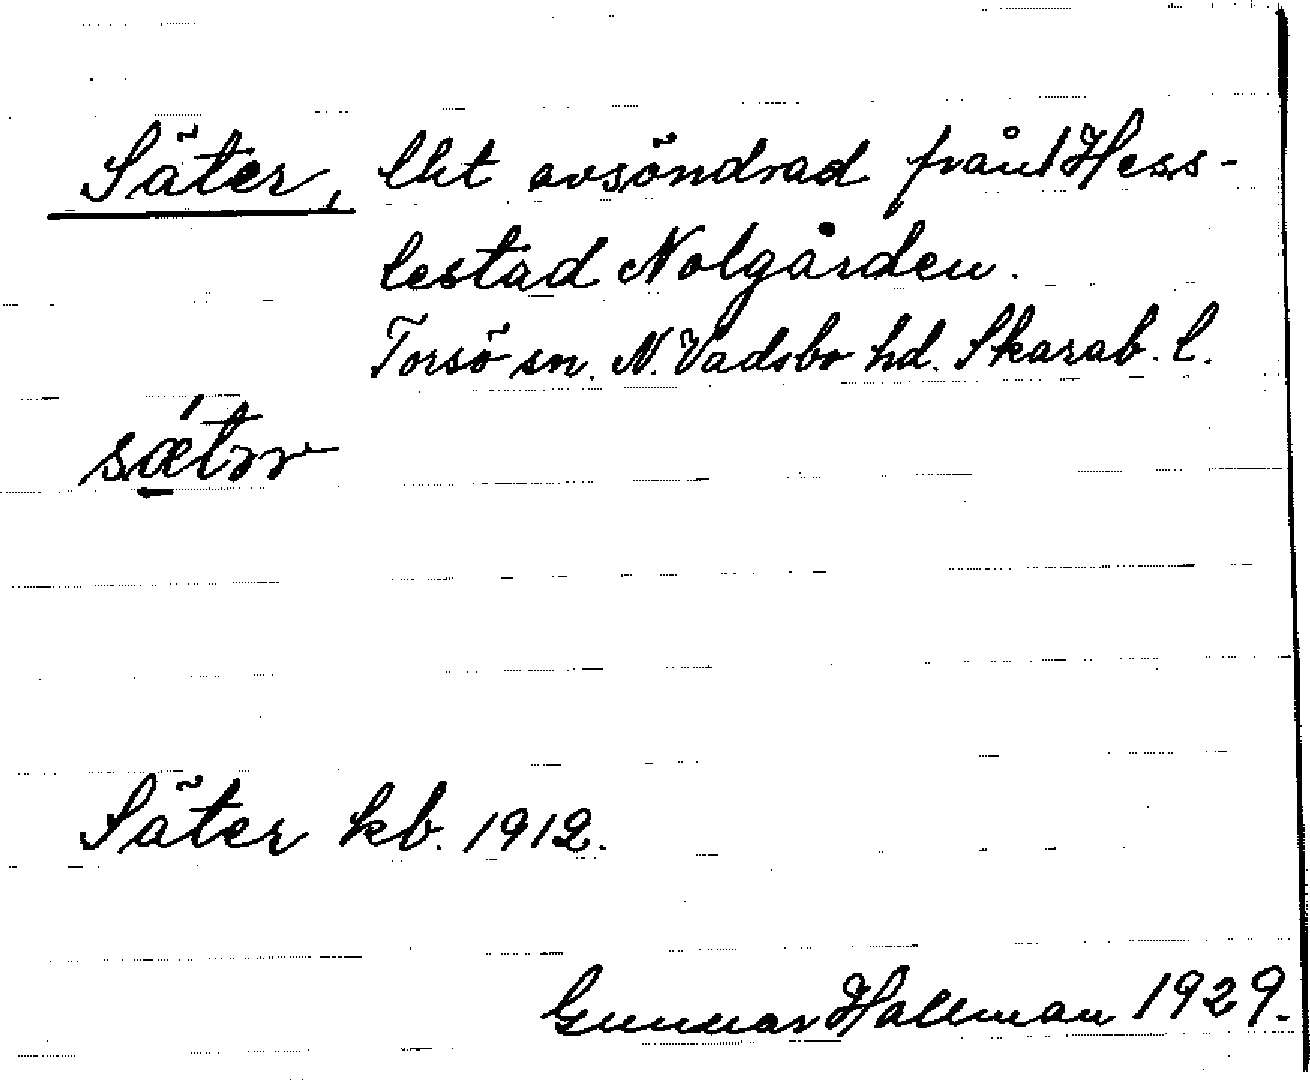 Säter, lht avsöndrad från Hess-
lestad Nolgården.
Torsö sn. N. Vadsbo hd. Skarab. l.
Säter kb. 1912.
Gunnar Hallman 1929.